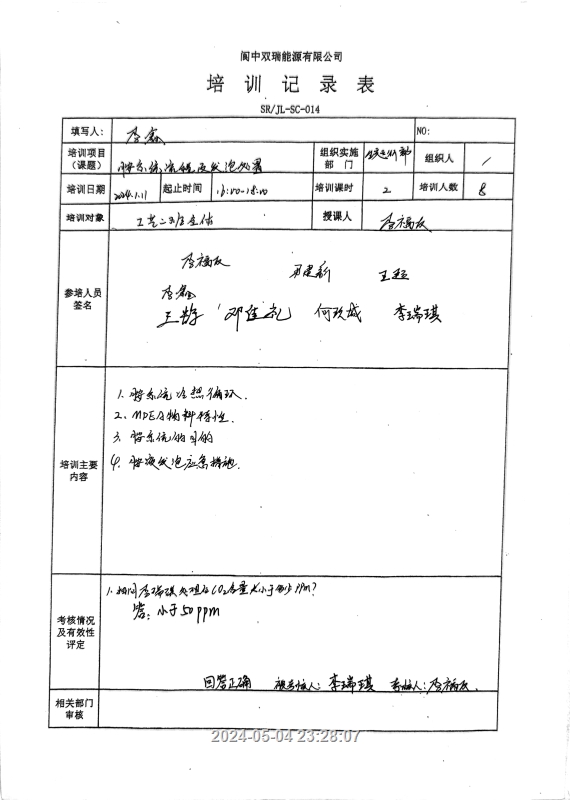 阆中双瑞能源有限公司
培 训 记 录 表
SR/JL-SC-014
填写人: 李鑫 NO:
培训项目(课题) 胺系统流程及发泡处置 组织实施部 门 组织人 /
培训日期 2024.1.11 起止时间 16:00-18:00 培训课时 2 培训人数 8
培训对象 工艺二班全体 授课人 李福友
参培人员签名
李福友 王超
李鑫
何玖城 李瑞琪
培训主要内容
1. 胺系统冷热循环.
2、MDEA物料特性.
3. 胺系统的目的
4. 胺液发泡应急措施.
考核情况及有效性评定
1. 提问李瑞琪处理后CO₂含量大小于多少PPM?
答: 小于50PPM
回答正确 被考核人: 李瑞琪 考核人: 李福友.
相关部门审核
2024-05-04 23:28:07